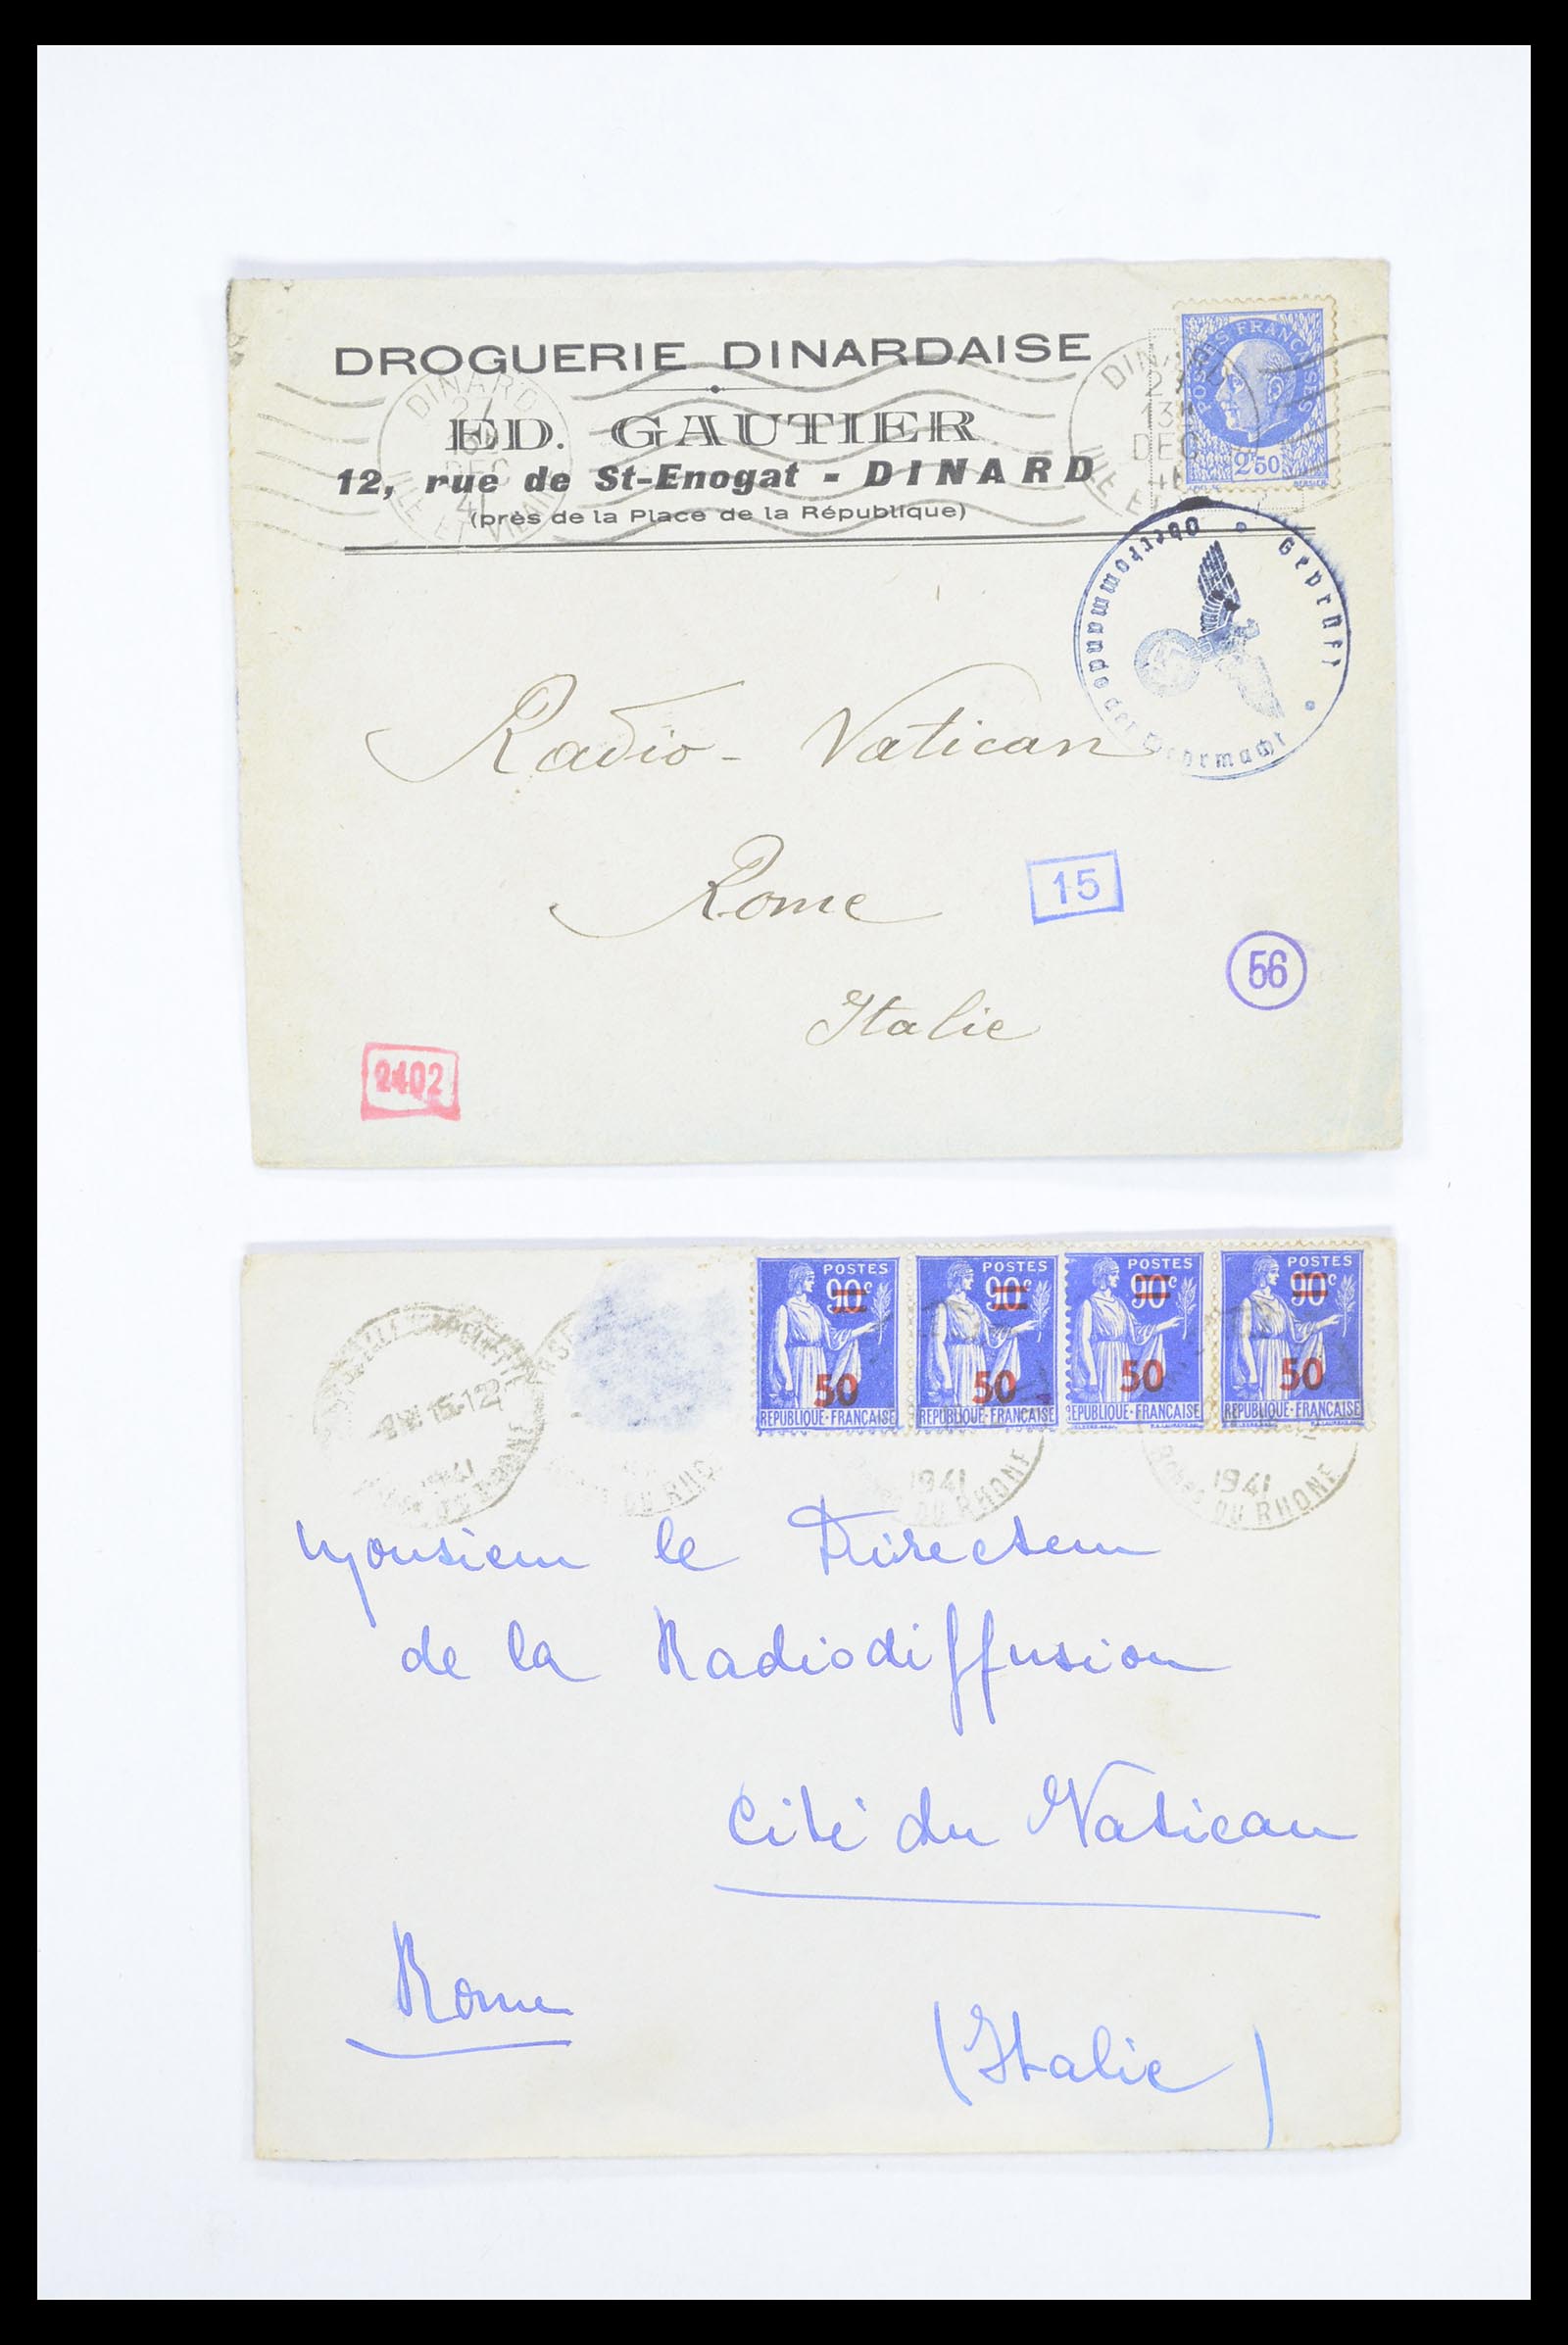 DROGUERIE DINARDAISE
ED. GAUTIER
12, rue de St-Enogat - DINARD
(près de la Place de la République)
DINARD
DEC
DINARD
13
DEC
POSTES FRANÇAISES
2F50
Geprüft
Oberkommando der Wehrmacht
Radio - Vatican
Rome
15
56
Italie
2402
POSTES 90c POSTES 90c POSTES 90c POSTES 90c
50 50 50 50
REPUBLIQUE-FRANÇAISE REPUBLIQUE-FRANÇAISE REPUBLIQUE-FRANÇAISE REPUBLIQUE-FRANÇAISE
15-12
1941
1941
DU RHONE
1941
DU RHONE
Monsieur le Directeur
de la Radiodiffusion
Cité du Vatican
Rome
(Italie)